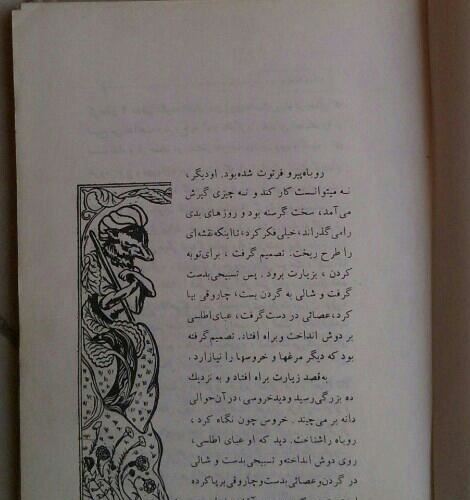 روباه پیرو فرتوت شده بود. او دیگر،
نه میتوانست کار کند و نه چیزی گیرش
می‌آمد، سخت گرسنه بود و روزهای بدی
را می گذراند، خیلی فکر کرد، تا اینکه نقشه‌ای
را طرح ریخت. تصمیم گرفت، برای توبه
کردن، بزیارت برود. پس تسبیحی بدست
گرفت و شالی به گردن بست، چاروقی بپا
کرد، عصائی در دست گرفت، عبای اطلسی
بر دوش انداخت و براه افتاد. تصمیم گرفته
بود که دیگر مرغها و خروسها را نیازارد.
به قصد زیارت براه افتاد و به نزدیك
ده بزرگی رسید و دید خروسی، در آن حوالی
دانه بر می‌چیند. خروس چون نگاه کرد،
روباه را شناخت. دید که او عبای اطلسی،
روی دوش انداخته و تسبیحی بدست و شالی
در گردن و عصائی بدست و چاروقی بر پا کرده